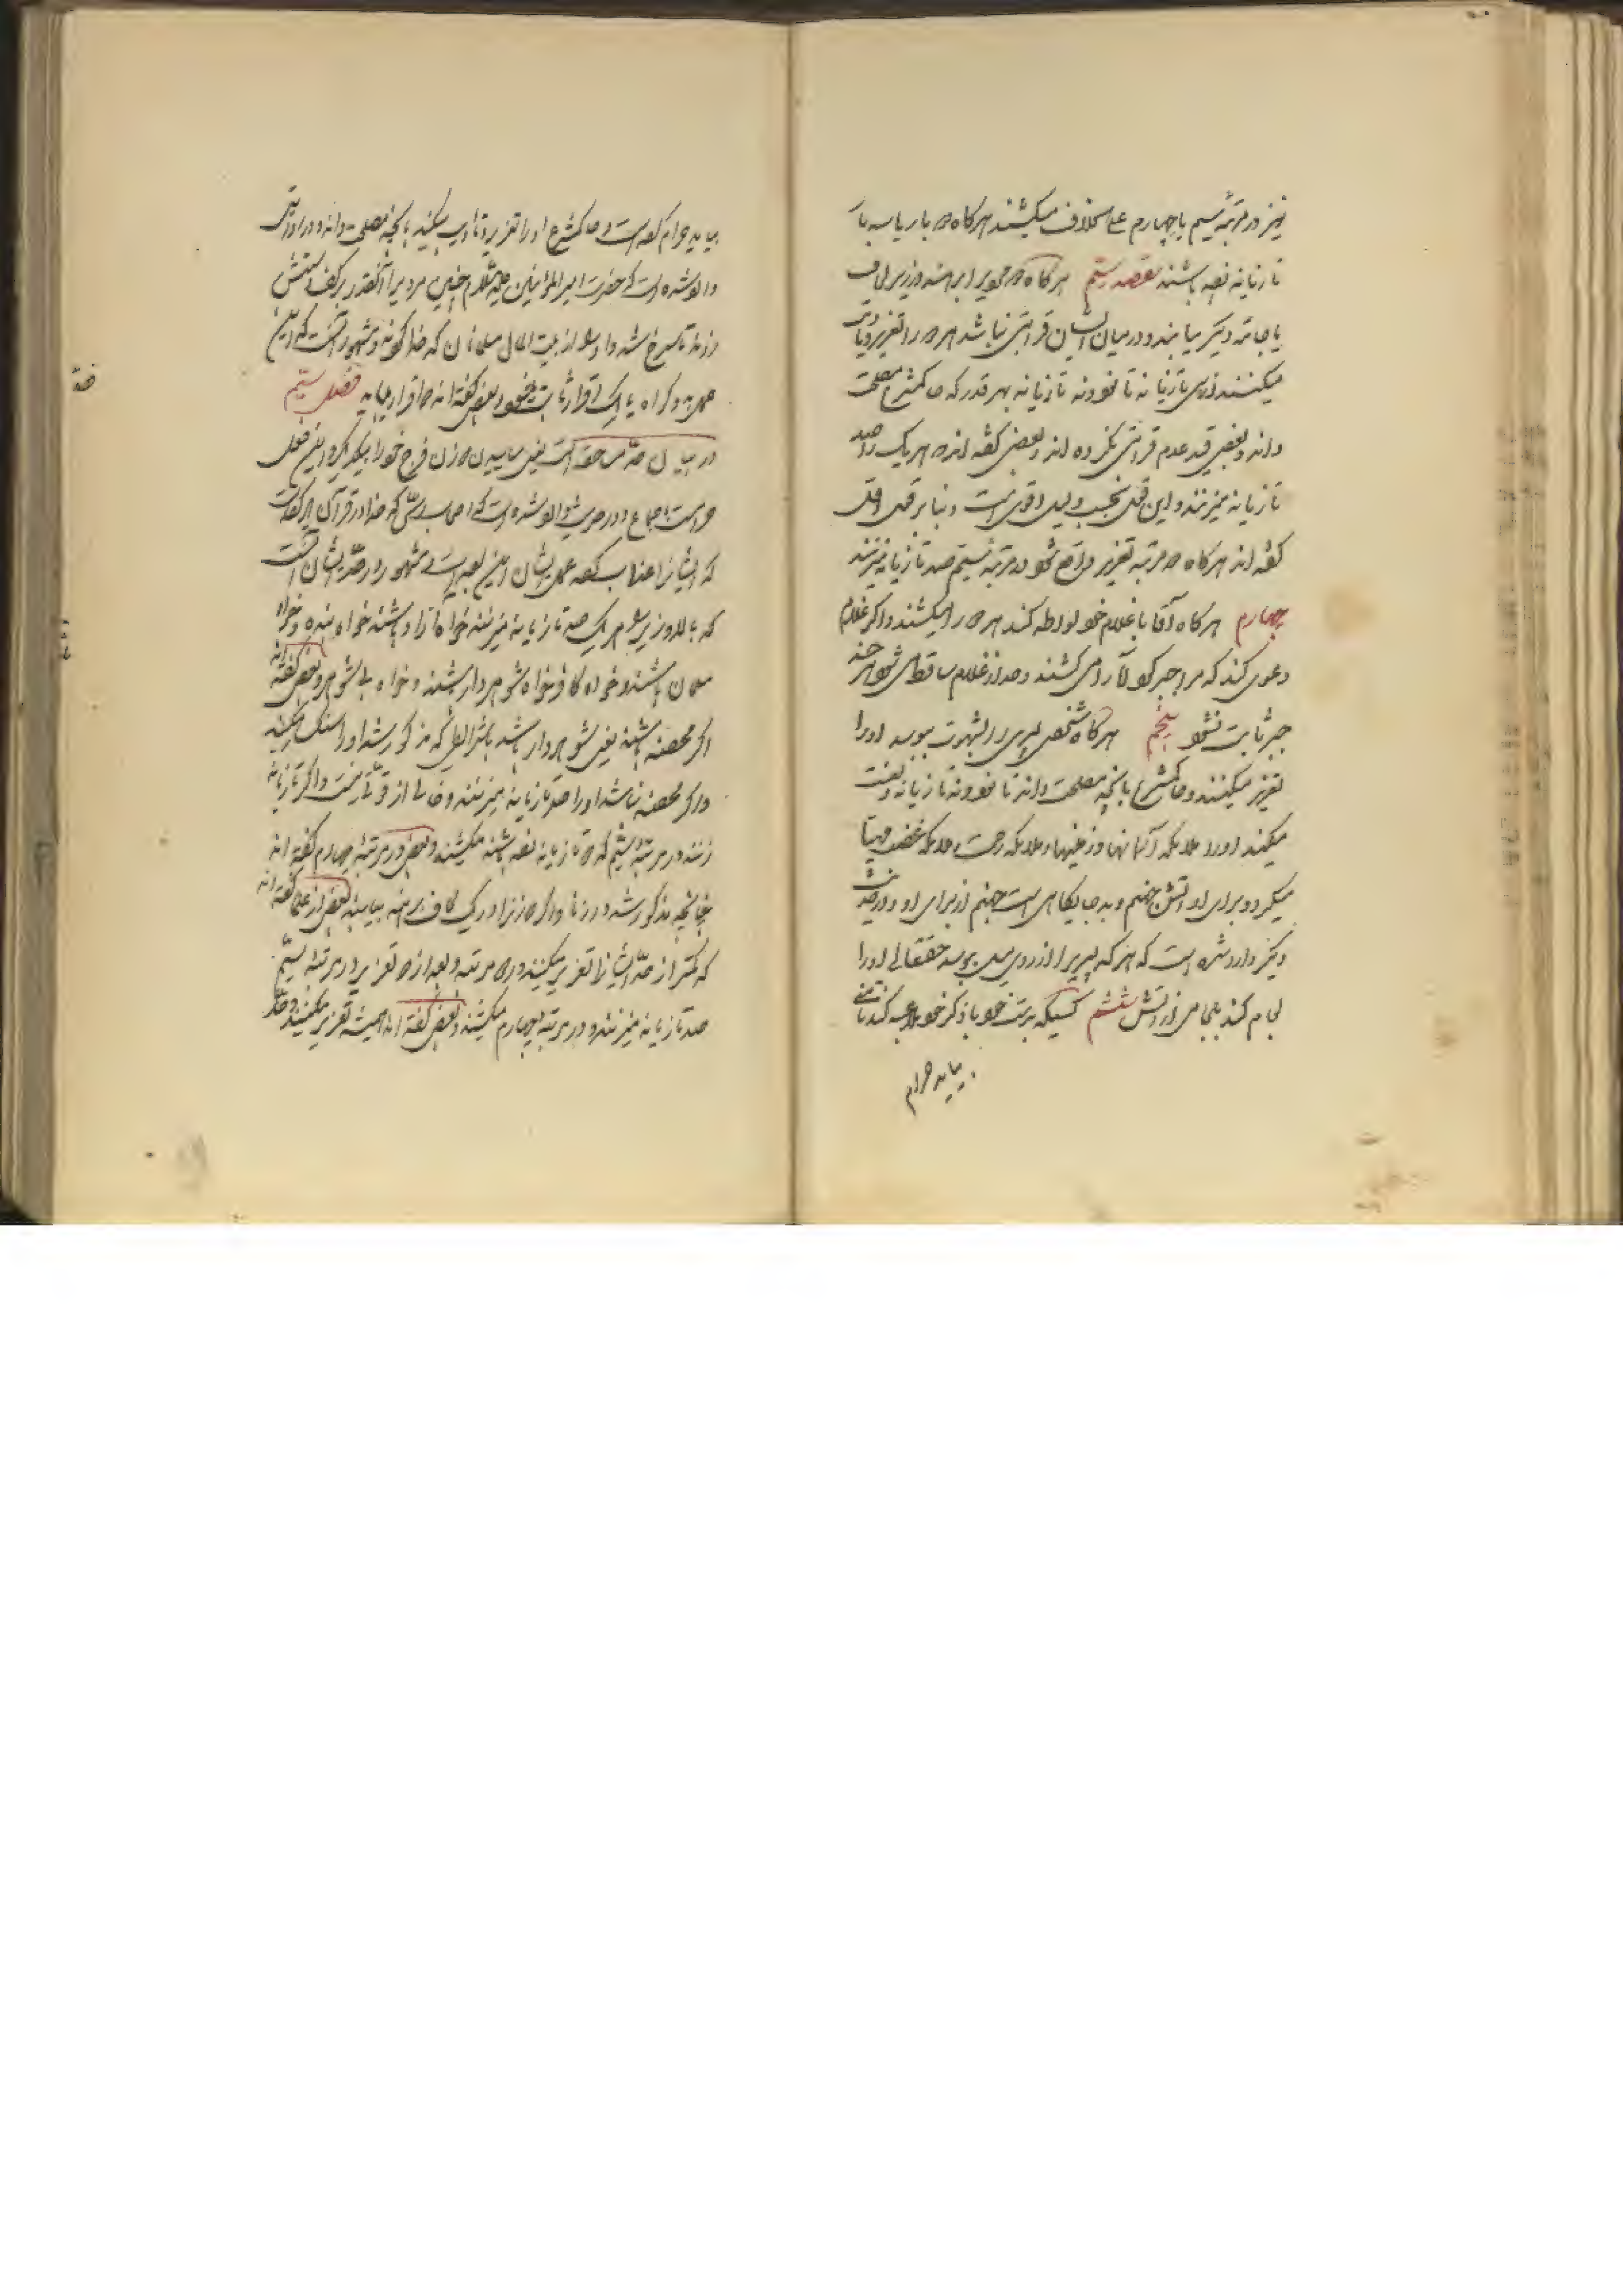 نیز در مرتبه سیم یا چهارم علی الخلاف میکشند هرگاه دو بار یا سه بار
تازیانه زده باشند مقصد سیم هرگاه دو مرد را برهنه در زیر لحاف
یا جامه دیگر بیابند و در میان ایشان قرابتی نباشد هر دو را تعزیر و تادیب
میکنند از سی تازیانه تا نود و نه تازیانه بهر قدر که حاکم شرع مصلحت
داند و بعضی قید عدم قرابتی نکرده اند و بعضی گفته اند هر یک را صد
تازیانه میزنند و این قول بحسب دلیل اقوی است و بنا بر قول اول
گفته اند هرگاه دو مرتبه تعزیر واقع شود در مرتبه سیم صد تازیانه میزنند
چهارم هرگاه آقا با غلام خود لواطه کند هر دو را میکشند و اگر غلام
دعوی کند که مرا جبر کرد آقا را می کشند و حد از غلام ساقط می شود هر چند
جبر ثابت نشود پنجم هرگاه شخصی پسری را بشهوت ببوسد او را
تعزیر میکنند و حاکم شرع بآنچه مصلحت داند تا نود و نه تازیانه و لعنت
میکند او را ملائکه آسمانها و زمینها و ملائکه رحمت و ملائکه غضب و مهیا
میگردد برای او آتش جهنم و بد جایگاهی است جهنم از برای او و در حدیث
دیگر وارد شده است که هر که پسری را از روی میل ببوسد حقتعالی او را
لجام کند بلجامی از آتش ششم کسیکه بدست خود با ذکر خود ملاعبه کند تا منی
بیاید حرام
بیاید حرام کرده است و حاکم شرع او را تعزیر و تادیب میکند بآنچه مصلحت داند و در روایتی
وارد شده است که حضرت امیر المؤمنین علیه السلام چنین مردی را آنقدر بر کف دستش
زدند تا سرخ شد و او را از بیت المال مسلمانان کدخدا کردند و مشهور آنست که این
عمل بدو گواه یا یک اقرار ثابت میشود و بعضی گفته اند دو اقرار میباید فصل سیم
در بیان حد مساحقه است یعنی ساییدن دو زن فرج خود را بیکدیگر و این فعل
حرامست باجماع و در حدیث وارد شده است که اصحاب رس که خدا در قرآن یاد کرده است
که ایشانرا عذاب کرده عمل ایشان این بوده است و مشهور در حد ایشان آنست
که بالا و زیر هر یک صد تازیانه میزنند خواه آزاد باشند خواه بنده و خواه
مسلمان باشند و خواه کافر خواه شوهردار باشند و خواه بی شوهر و بعضی گفته اند
اگر محصنه باشند یعنی شوهردار باشد بشرایطی که مذکور شد او را سنگ میکنند
و اگر محصنه نباشد او را صد تازیانه میزنند و خالی از قوتی نیست و اگر تازیانه
زنند در مرتبه سیم که دو تازیانه زده باشند میکشند و بعضی در مرتبه چهارم گفته اند
چنانچه مذکور شد در زنا و اگر دو زنرا در یک لحاف برهنه بیابند بعضی از علما گفته اند
که کمتر از حد ایشانرا تعزیر میکنند در دو مرتبه و بعد از دو تعزیر در مرتبه سیم
صد تازیانه میزنند و در مرتبه چهارم میکشند و بعضی گفته اند همیشه تعزیر میکنند و حد